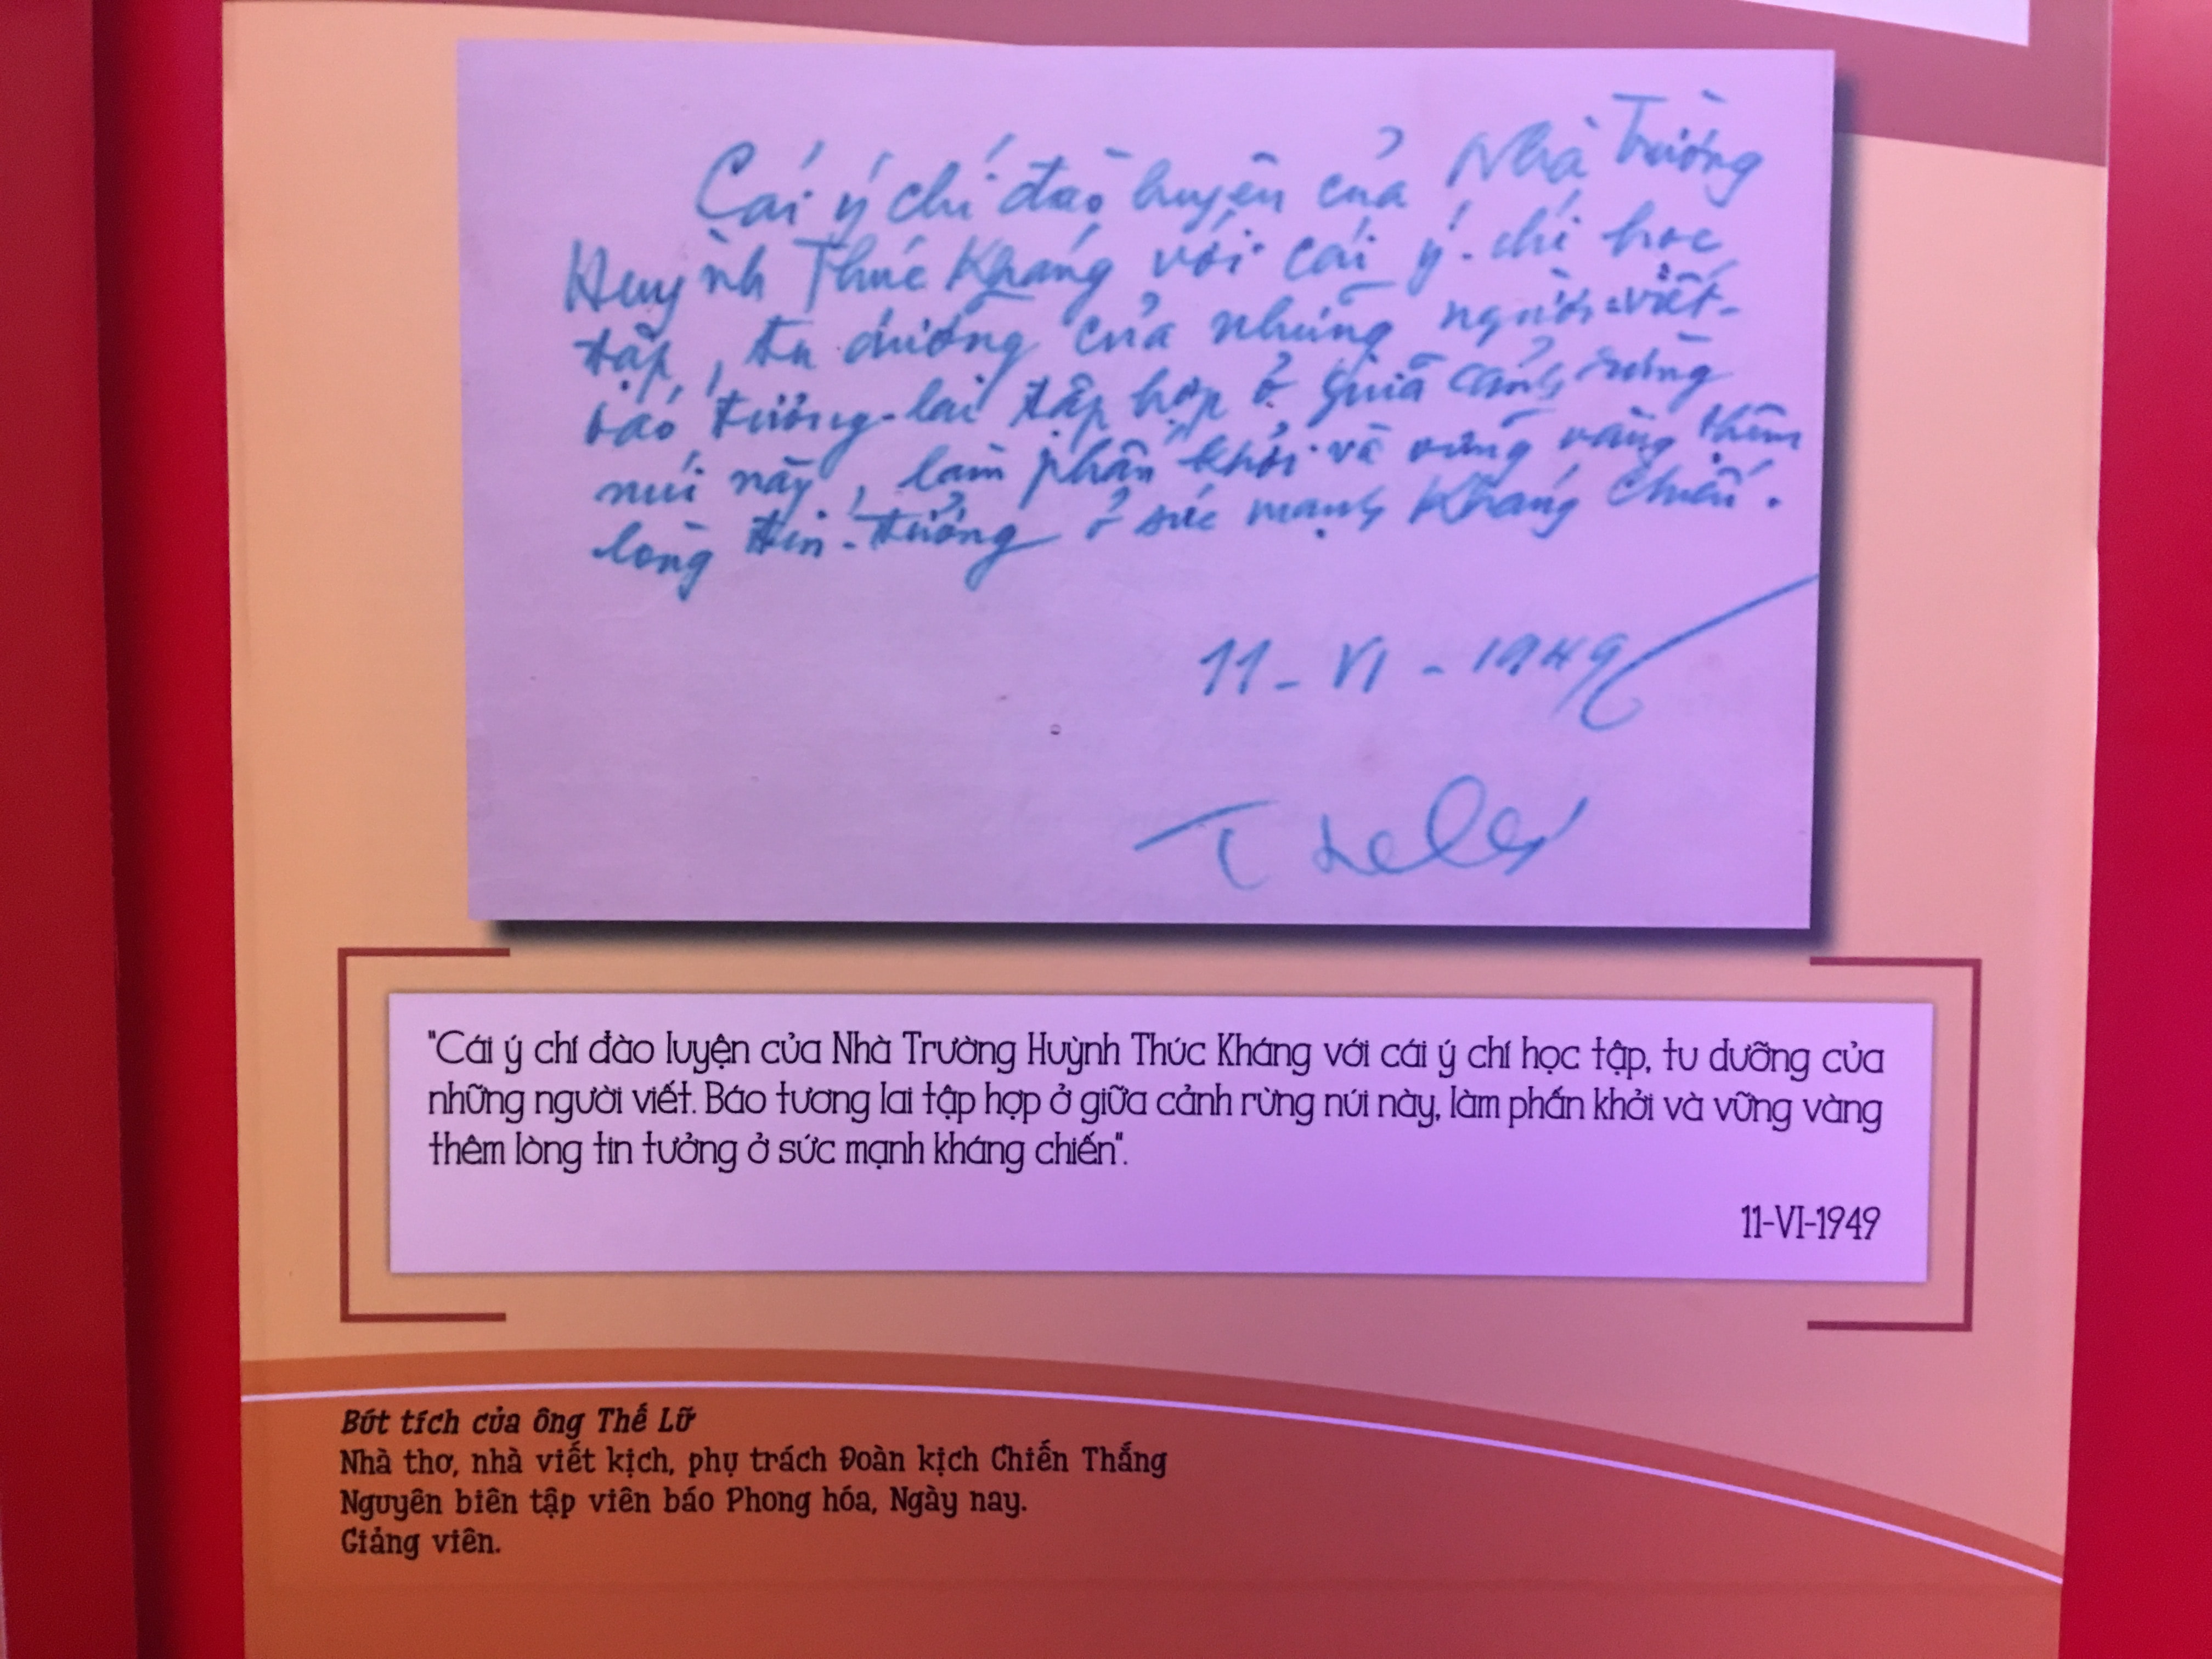 Cái ý chí đào luyện của Nhà Trường
Huỳnh Thúc Kháng với cái ý chí học
tập, tu dưỡng của những người viết
báo tương-lai tập hợp ở giữa cảnh rừng
núi này, làm phấn khởi và vững vàng thêm
lòng tin-tưởng ở sức mạnh Kháng Chiến.
11-VI-1949
"Cái ý chí đào luyện của Nhà Trường Huỳnh Thúc Kháng với cái ý chí học tập, tu dưỡng của
những người viết. Báo tương lai tập hợp ở giữa cảnh rừng núi này, làm phấn khởi và vững vàng
thêm lòng tin tưởng ở sức mạnh kháng chiến".
11-VI-1949
Bút tích của ông Thế Lữ
Nhà thơ, nhà viết kịch, phụ trách Đoàn kịch Chiến Thắng
Nguyên biên tập viên báo Phong hóa, Ngày nay.
Giảng viên.